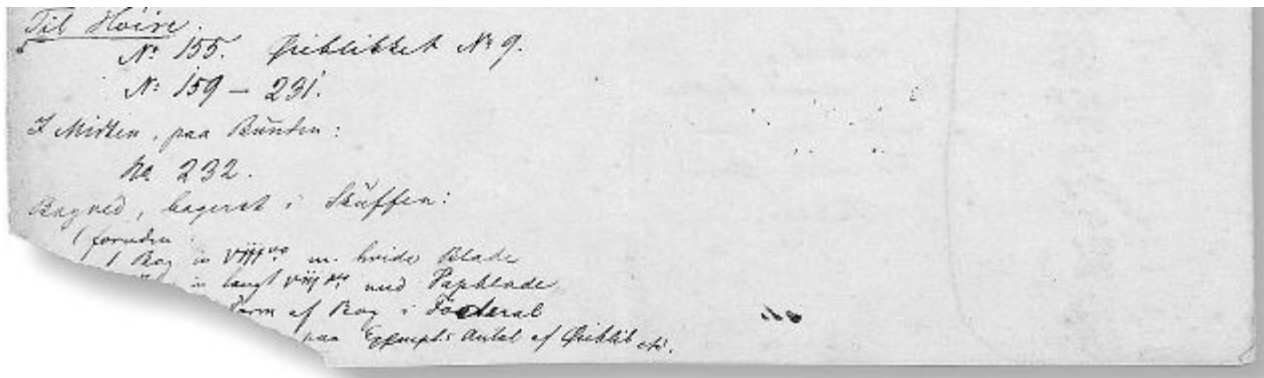 Til Høire.
№ 155. Øieblikket № 9.
№ 159 – 231.
I Midten, paa Bunden:
No 232.
Bagved, bagerst i Skuffen:
(foruden
1 Bog in VIIIvo m. hvide Blade
in langt VIIIvo med Papblade
Form af Bog i Foderal
paa Exempl: Antal af Øieblik etc.